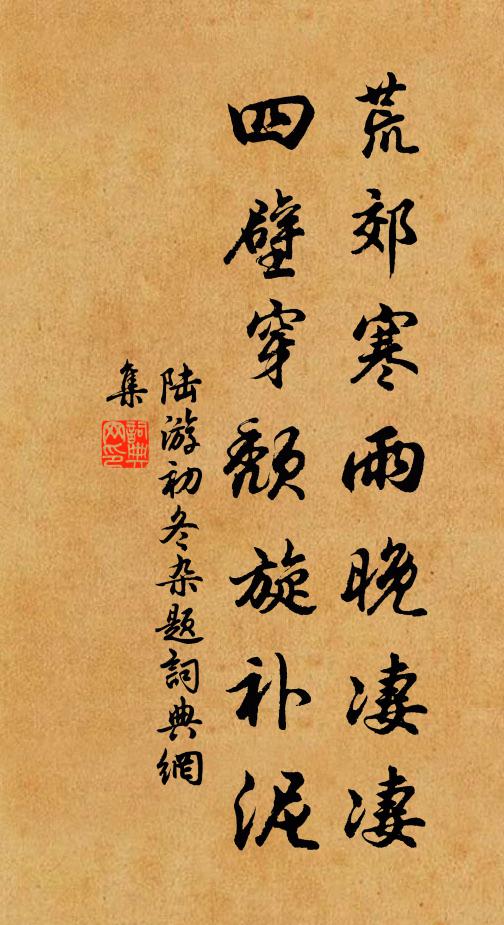 荒郊寒雨晚凄凄
四壁穿颓旋补泥
陆游初冬杂题詞典網
集
詞典网印